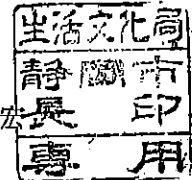 生活文化局
静岡市
宏
長印
専用